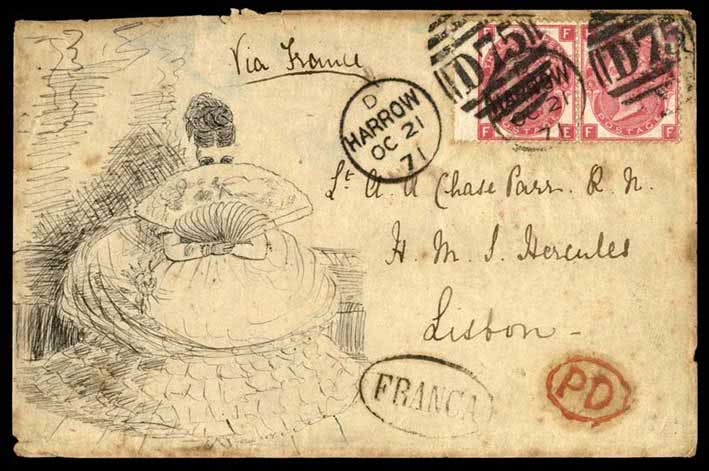 Via France
D
HARROW
OC 21
71
D75
HARROW
OC 21
71
D75
F F
F E
F F
POSTAGE
POSTAGE
Lt A. A Chase Parr. R. N.
H. M. S. Hercules
Lisbon -
FRANCA
PD